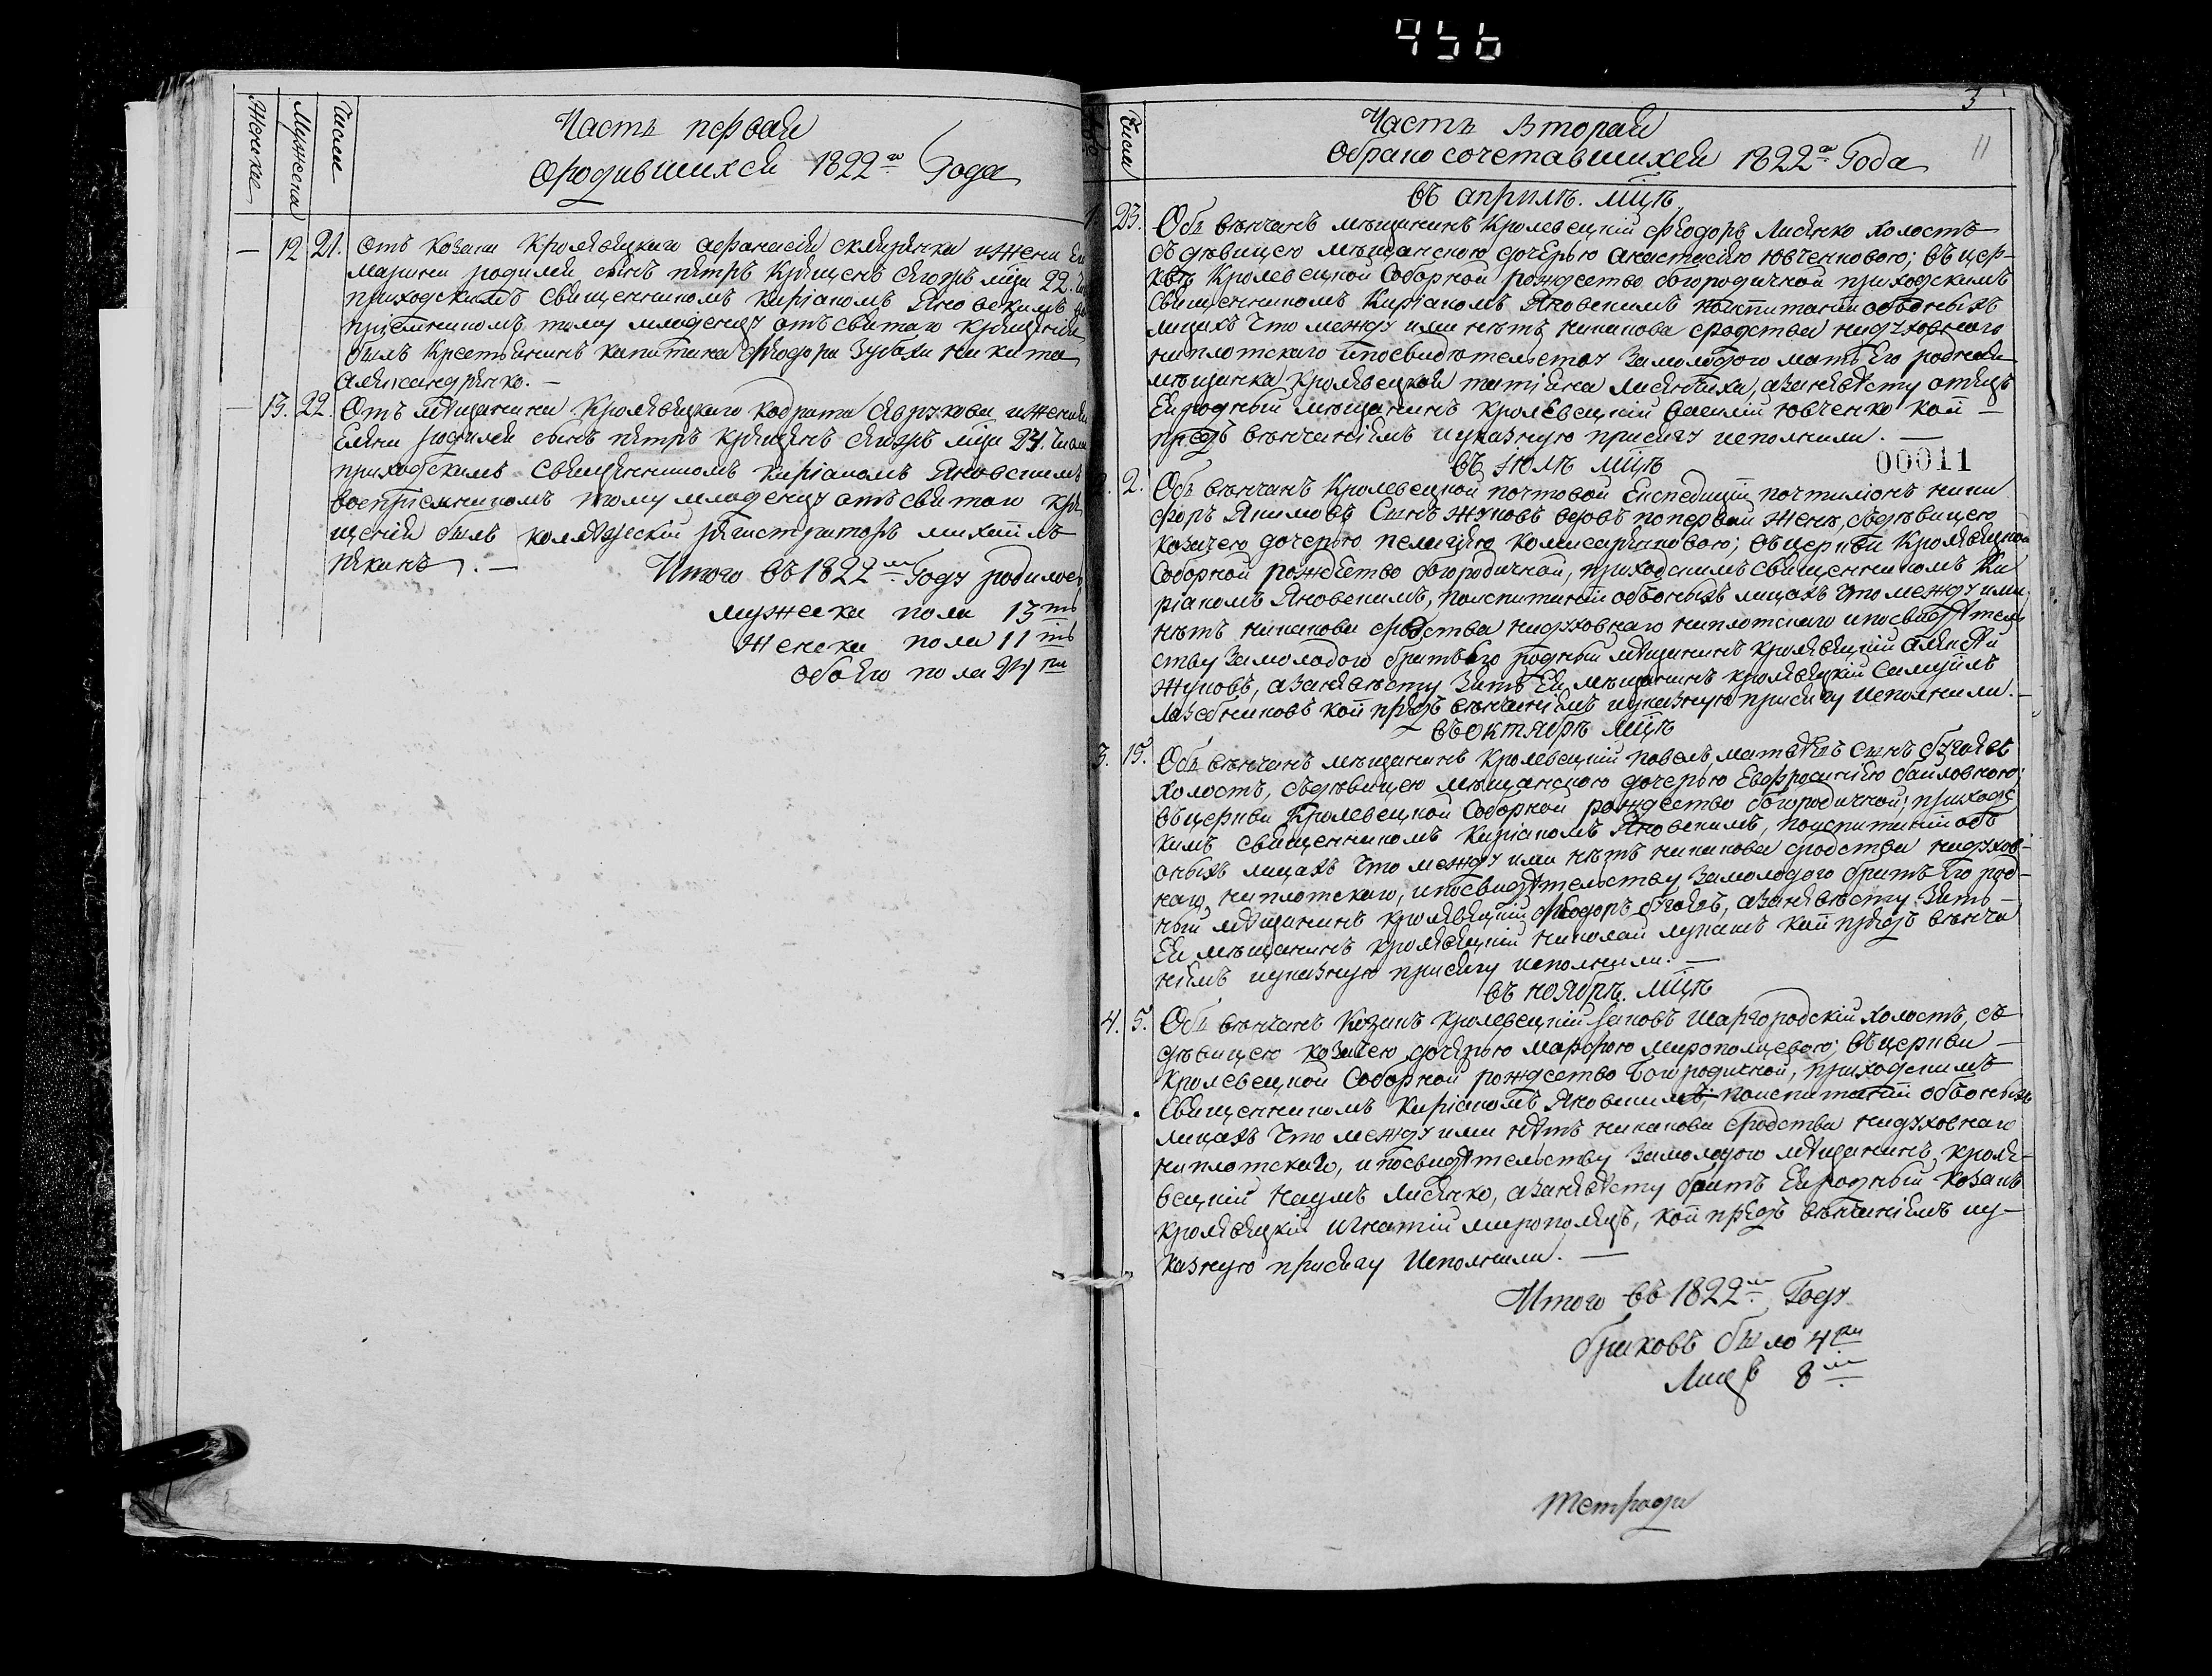 456
Женска
Мужеска
Числа
Часть первая
ородившихся 1822го Года
12 21. Отъ козака Кролевецкаго Афанасія скляренка и жени Ея
Марини родился сынъ петръ крещенъ Тогожъ мца 22. Чи
приходскимъ Священникомъ Киріакомъ Яновскимъ во
пріемникомъ тому младенцу отъ святаго крещенія
былъ Крестьянинъ капитана Феодора Зубахи никита
александренко. —
13. 22. Отъ мещанина Кролевецкаго Кодрата и жени Ея
Елени родился сынъ петръ крещенъ тогожъ мца 24. Числа
приходскимъ Священникомъ Киріакомъ Яновскимъ
Воспріемникомъ тому младенцу отъ святаго кре
щенія былъ колежскій регистраторъ михаилъ
пекинъ. —
Итого въ 1822м Году родилось
мужеска пола 13ть
Женска пола 11ть
обоего пола 24ри
3
11
Числа
Часть вторая
Обрако сочетавшихся 1822го Года
въ априлѣ. мцѣ.
1. 23. Обвѣнчанъ мѣщанинъ Кролевецкій Феодоръ Лисенко холостъ
съ дѣвицею мѣщанскою дочерью анастасіею Ювченковою; въ цер-
квѣ Кролевецкой Соборной рождество богородичной приходскимъ
Священникомъ Киріакомъ Яновскимъ поиспитаніи обоныхъ
лицахъ что между ими нѣтъ никакова сродства нидуховнаго
ниплотскаго ипосвидѣтельству замолодого мать Его родная
мѣщанка Кролевецкая татіяна лисенчиха, азаневѣсту отецъ
Ея родный мѣщанинъ кролевецкій Василій Ювченко кои —
предъ вѣнчаніемъ иуказную присягу исполнили. —
въ Июлѣ мцѣ
00011
2. 2. Обвѣнчанъ Кролевецкой почтовой Експедиціи почтиліонъ ники
форъ Якимовъ Сынъ Жуковъ вдовъ по первой женѣ, сдѣвицею
козачею дочерью пелагіею комисаренковою; въ церкви Кролевецкой
Соборной рождество богородичной, приходскимъ священникомъ Ки
ріакомъ Яновскимъ, поиспитаніи обоныхъ лицахъ что между ими
нѣтъ никакова сродства нидуховнаго ниплотскаго ипосвидѣтель
ству замолодого братъ его родный мѣщанинъ кролевецкій алексѣй
Жуковъ, азаневѣсту Зять Ея мѣщанинъ кролевецкій Самуилъ
Лазебниковъ кои предъ вѣнчаніемъ иуказную присягу исполнили. —
въ октябрѣ мцѣ
3. 15. Обвѣнчанъ мѣщанинъ Кролевецкій павелъ матвѣевъ сынъ бугаевъ
холостъ, сдѣвицею мѣщанскою дочерью Евфросиніею
въ церкви Кролевецкой Соборной рождество богородичной; приходс
кимъ священникомъ Киріакомъ Яновскимъ, поиспитаніи объ
оныхъ лицахъ что между ими нѣтъ никакова сродства нидухов-
наго, ниплотскаго, ипосвидѣтельству замолодого братъ Его род-
ный мѣщанинъ кролевецкій Феодоръ бугаевъ, азаневѣсту Зять —
Ея мѣщанинъ кролевецкій николай лукашъ кои предъ вѣнча
ніемъ иуказную присягу исполнили. —
въ ноябрѣ. мцѣ
4. 5. Обвѣнчанъ Козакъ Кролевецкій Іаковъ Шаргородскій холостъ, съ
дѣвицею козачею дочерью Марфою мирополцевою; въ церкви —
Кролевецкой Соборной рождество Богородичной, приходскимъ
Священникомъ Киріакомъ Яновскимъ, поиспитаніи обоныхъ
лицахъ что между ими нѣтъ никакова сродства нидуховнаго
ниплотскаго, ипосвидѣтельству замолодого мѣщанинъ кроле-
вецкій Наумъ Лисенко, азаневѣсту братъ Ея родный козакъ
кролевецкій игнатій мирополецъ, кои предъ вѣнчаніемъ иу-
казную присягу исполнили. —
Итого въ 1822м Году
браковъ было 4ри
Лицъ 8м
Тетради